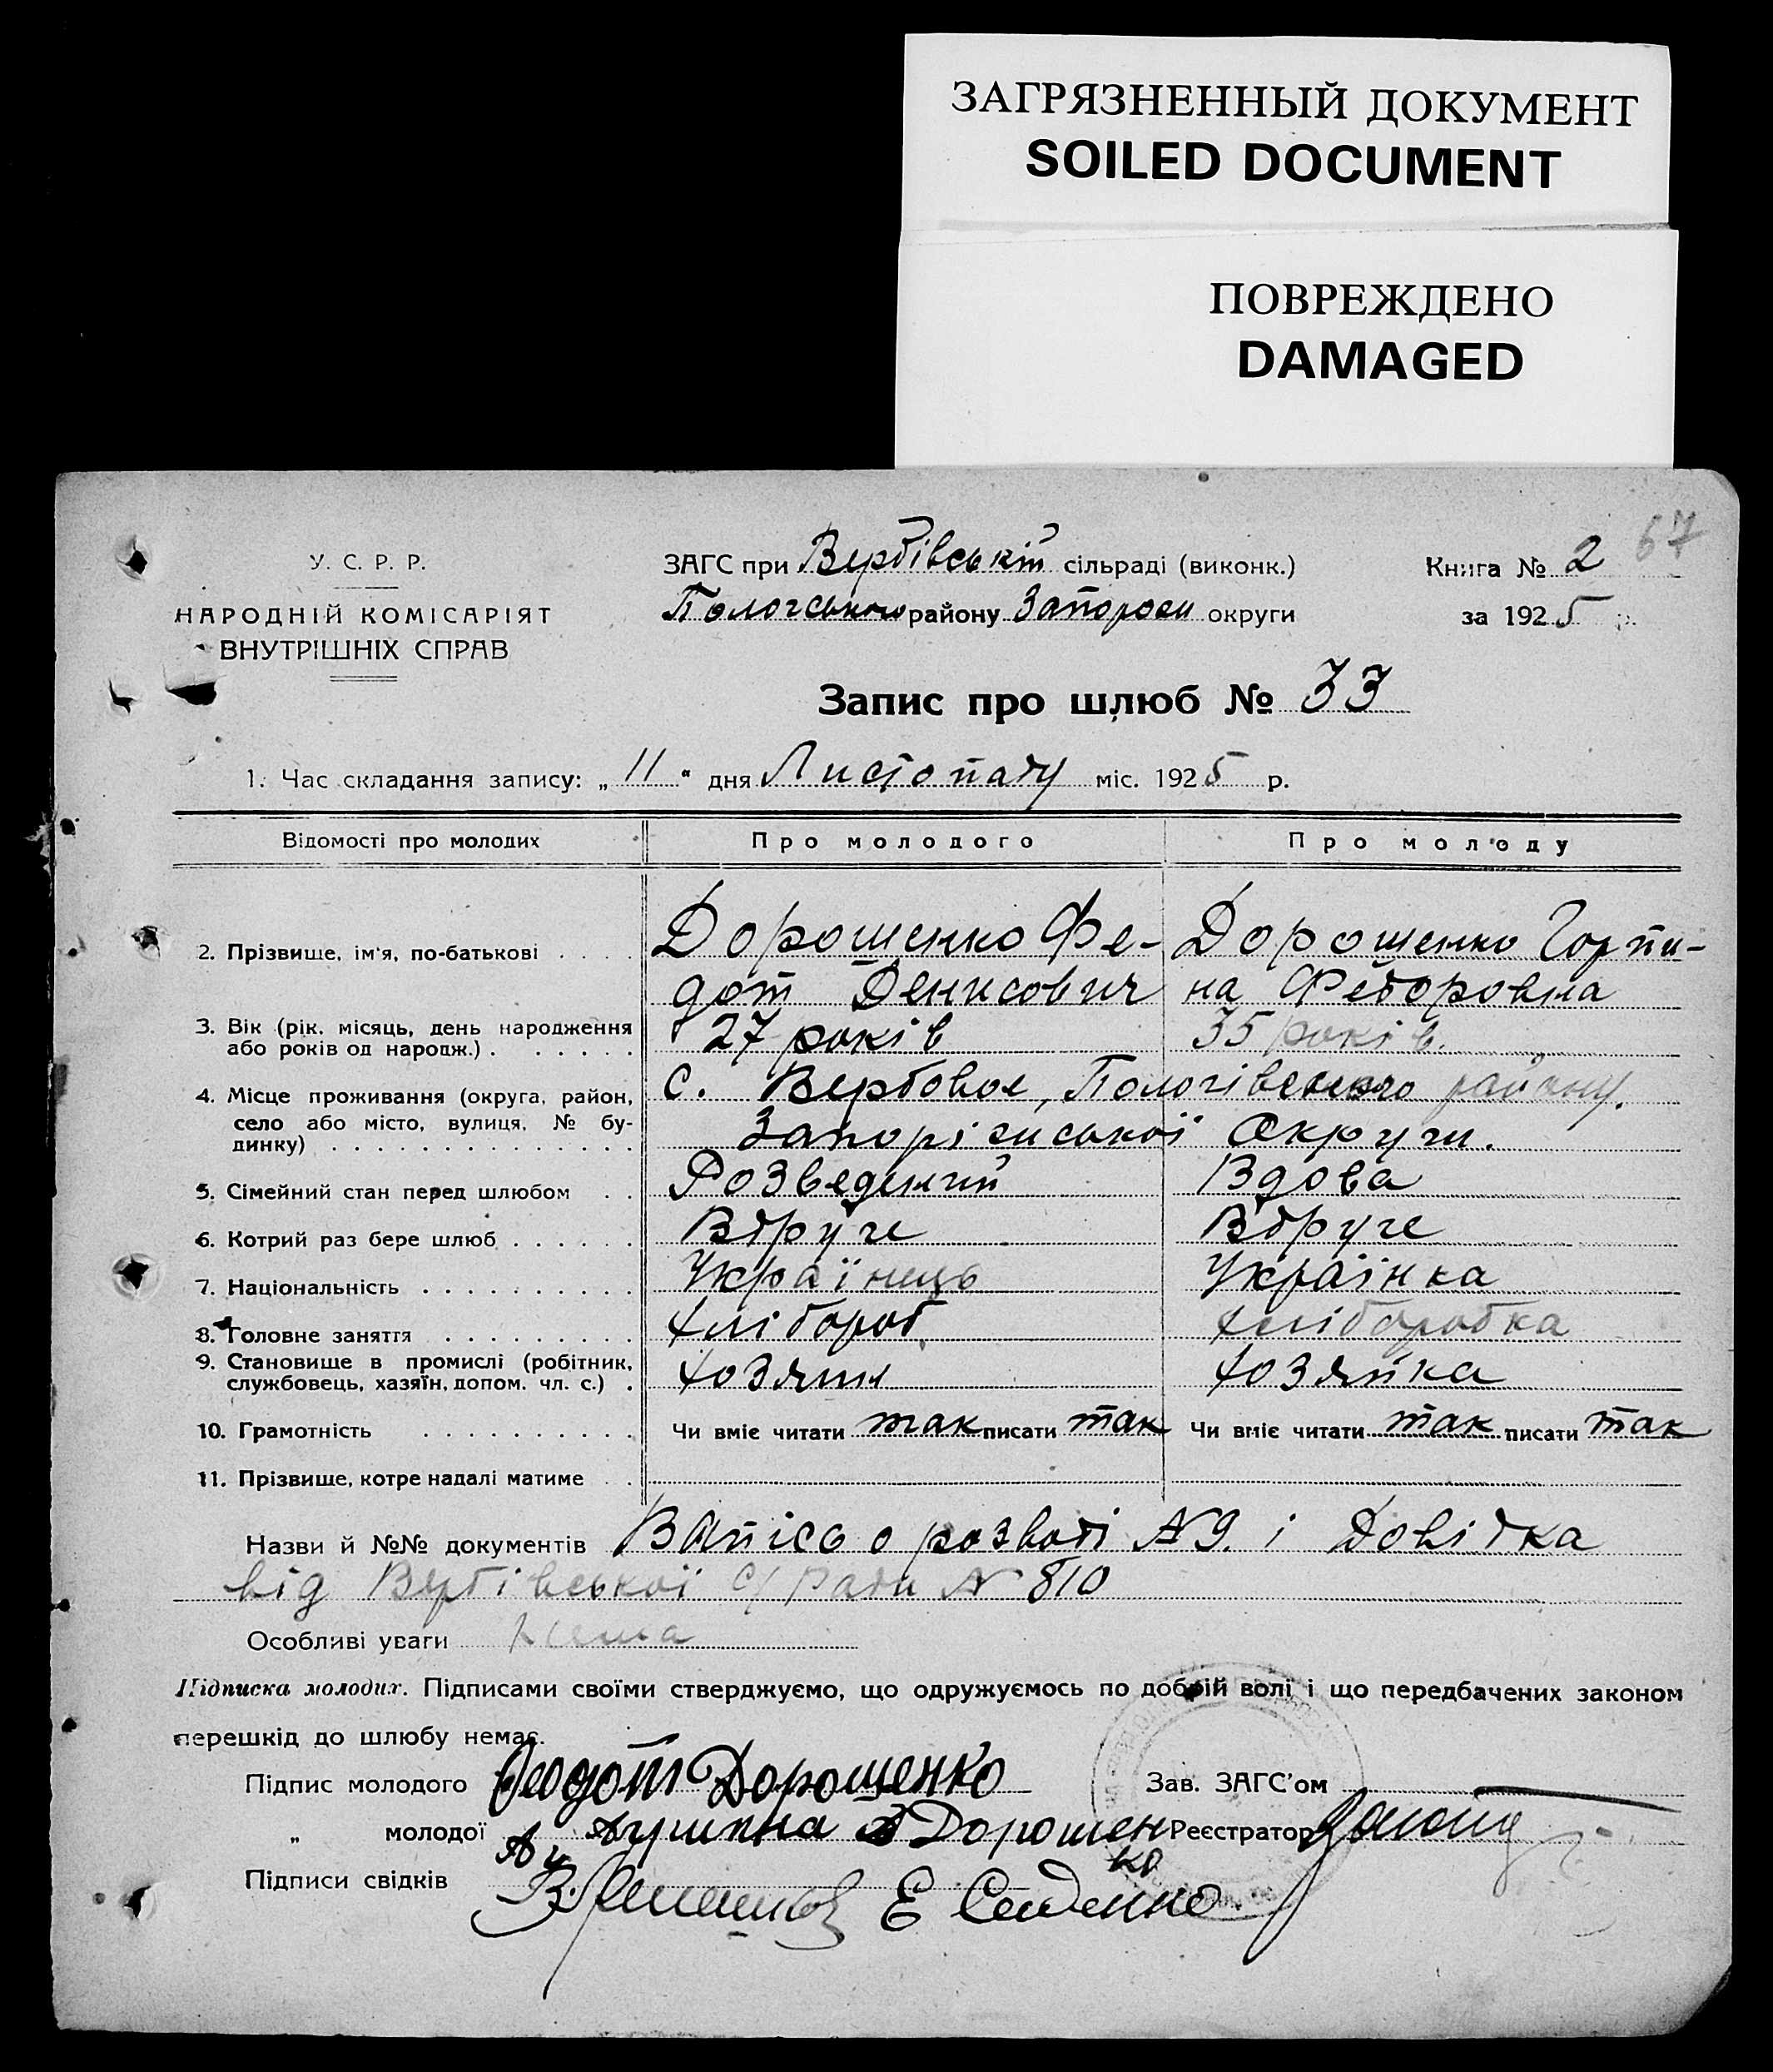 ЗАГРЯЗНЕННЫЙ ДОКУМЕНТ
SOILED DOCUMENT
ПОВРЕЖДЕНО
DAMAGED
67
У. С. Р. Р.
НАРОДНІЙ КОМІСАРІЯТ
ВНУТРІШНІХ СПРАВ
ЗАГС при Вербівській сільраді (виконк.)
Пологського району Запорози округи
Книга № 2
за 1925 р.
Запис про шлюб № 33
1. Час складання запису: „11“ дня Листопаду міс. 1925 р.
Відомості про молодих Про молодого Про молоду
2. Прізвище, ім'я, по-батькові . . . . Дорошенко Фе- Дорошенко Горпи-
дот Денисович на Федоровна
3. Вік (рік. місяць, день народження
або років од народж.) . . . . . . 27 років 35 років.
4. Місце проживання (округа, район,
село або місто, вулиця, № бу-
динку) . . . . . . . . . . . . . .
с. Вербовое, Пологівського району.
Запорізиської Округи.
5. Сімейний стан перед шлюбом . . Розведений Вдова
6. Котрий раз бере шлюб . . . . . . Вдруге Вдруге
7. Національність . . . . . . . . . . Українець Українка
8. Головне заняття . . . . . . . . . Хлібороб Хліборобка
9. Становище в промислі (робітник,
службовець, хазяїн, допом. чл. с.) . Хозяин Хозяйка
10. Грамотність . . . . . . . . . . Чи вміє читати так писати так Чи вміє читати так писати так
11. Прізвище, котре надалі матиме . .
Назви й №№ документів Запісь о розводі №9. і Довідка
від Вербівської с/Ради № 810
Особливі уваги нема
Підписка молодих. Підписами своїми стверджуємо, що одружуємось по добрій волі і що передбачених законом
перешкід до шлюбу немає.
Підпис молодого Федот Дорошенко Зав. ЗАГС'ом
„ молодої Дорошен Реєстратор
ко
Підписи свідків